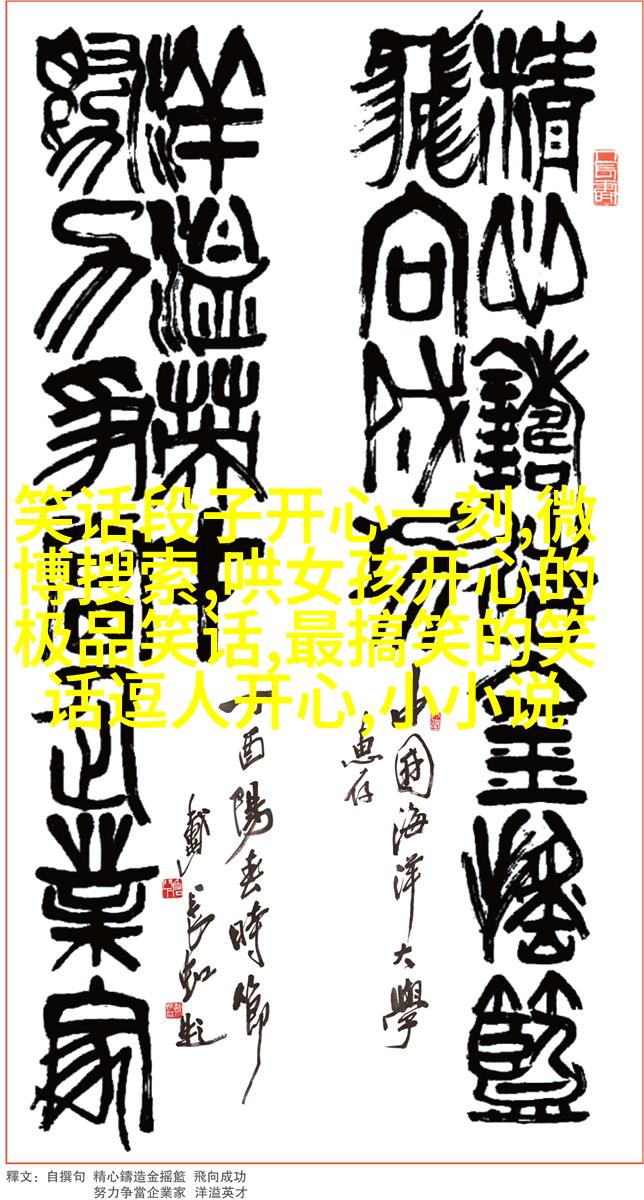 精心鑄造金搖籃
飛向成功
中國海洋大學
惠存
努力爭當企業家
洋溢英才
丁酉陽春時節
戴長虹題
笑话段子开心一刻,微
博搜索,哄女孩开心的
极品笑话,最搞笑的笑
话逗人开心,小小说
釋文：自撰句 精心鑄造金摇籃 飛向成功
努力争當企業家 洋溢英才